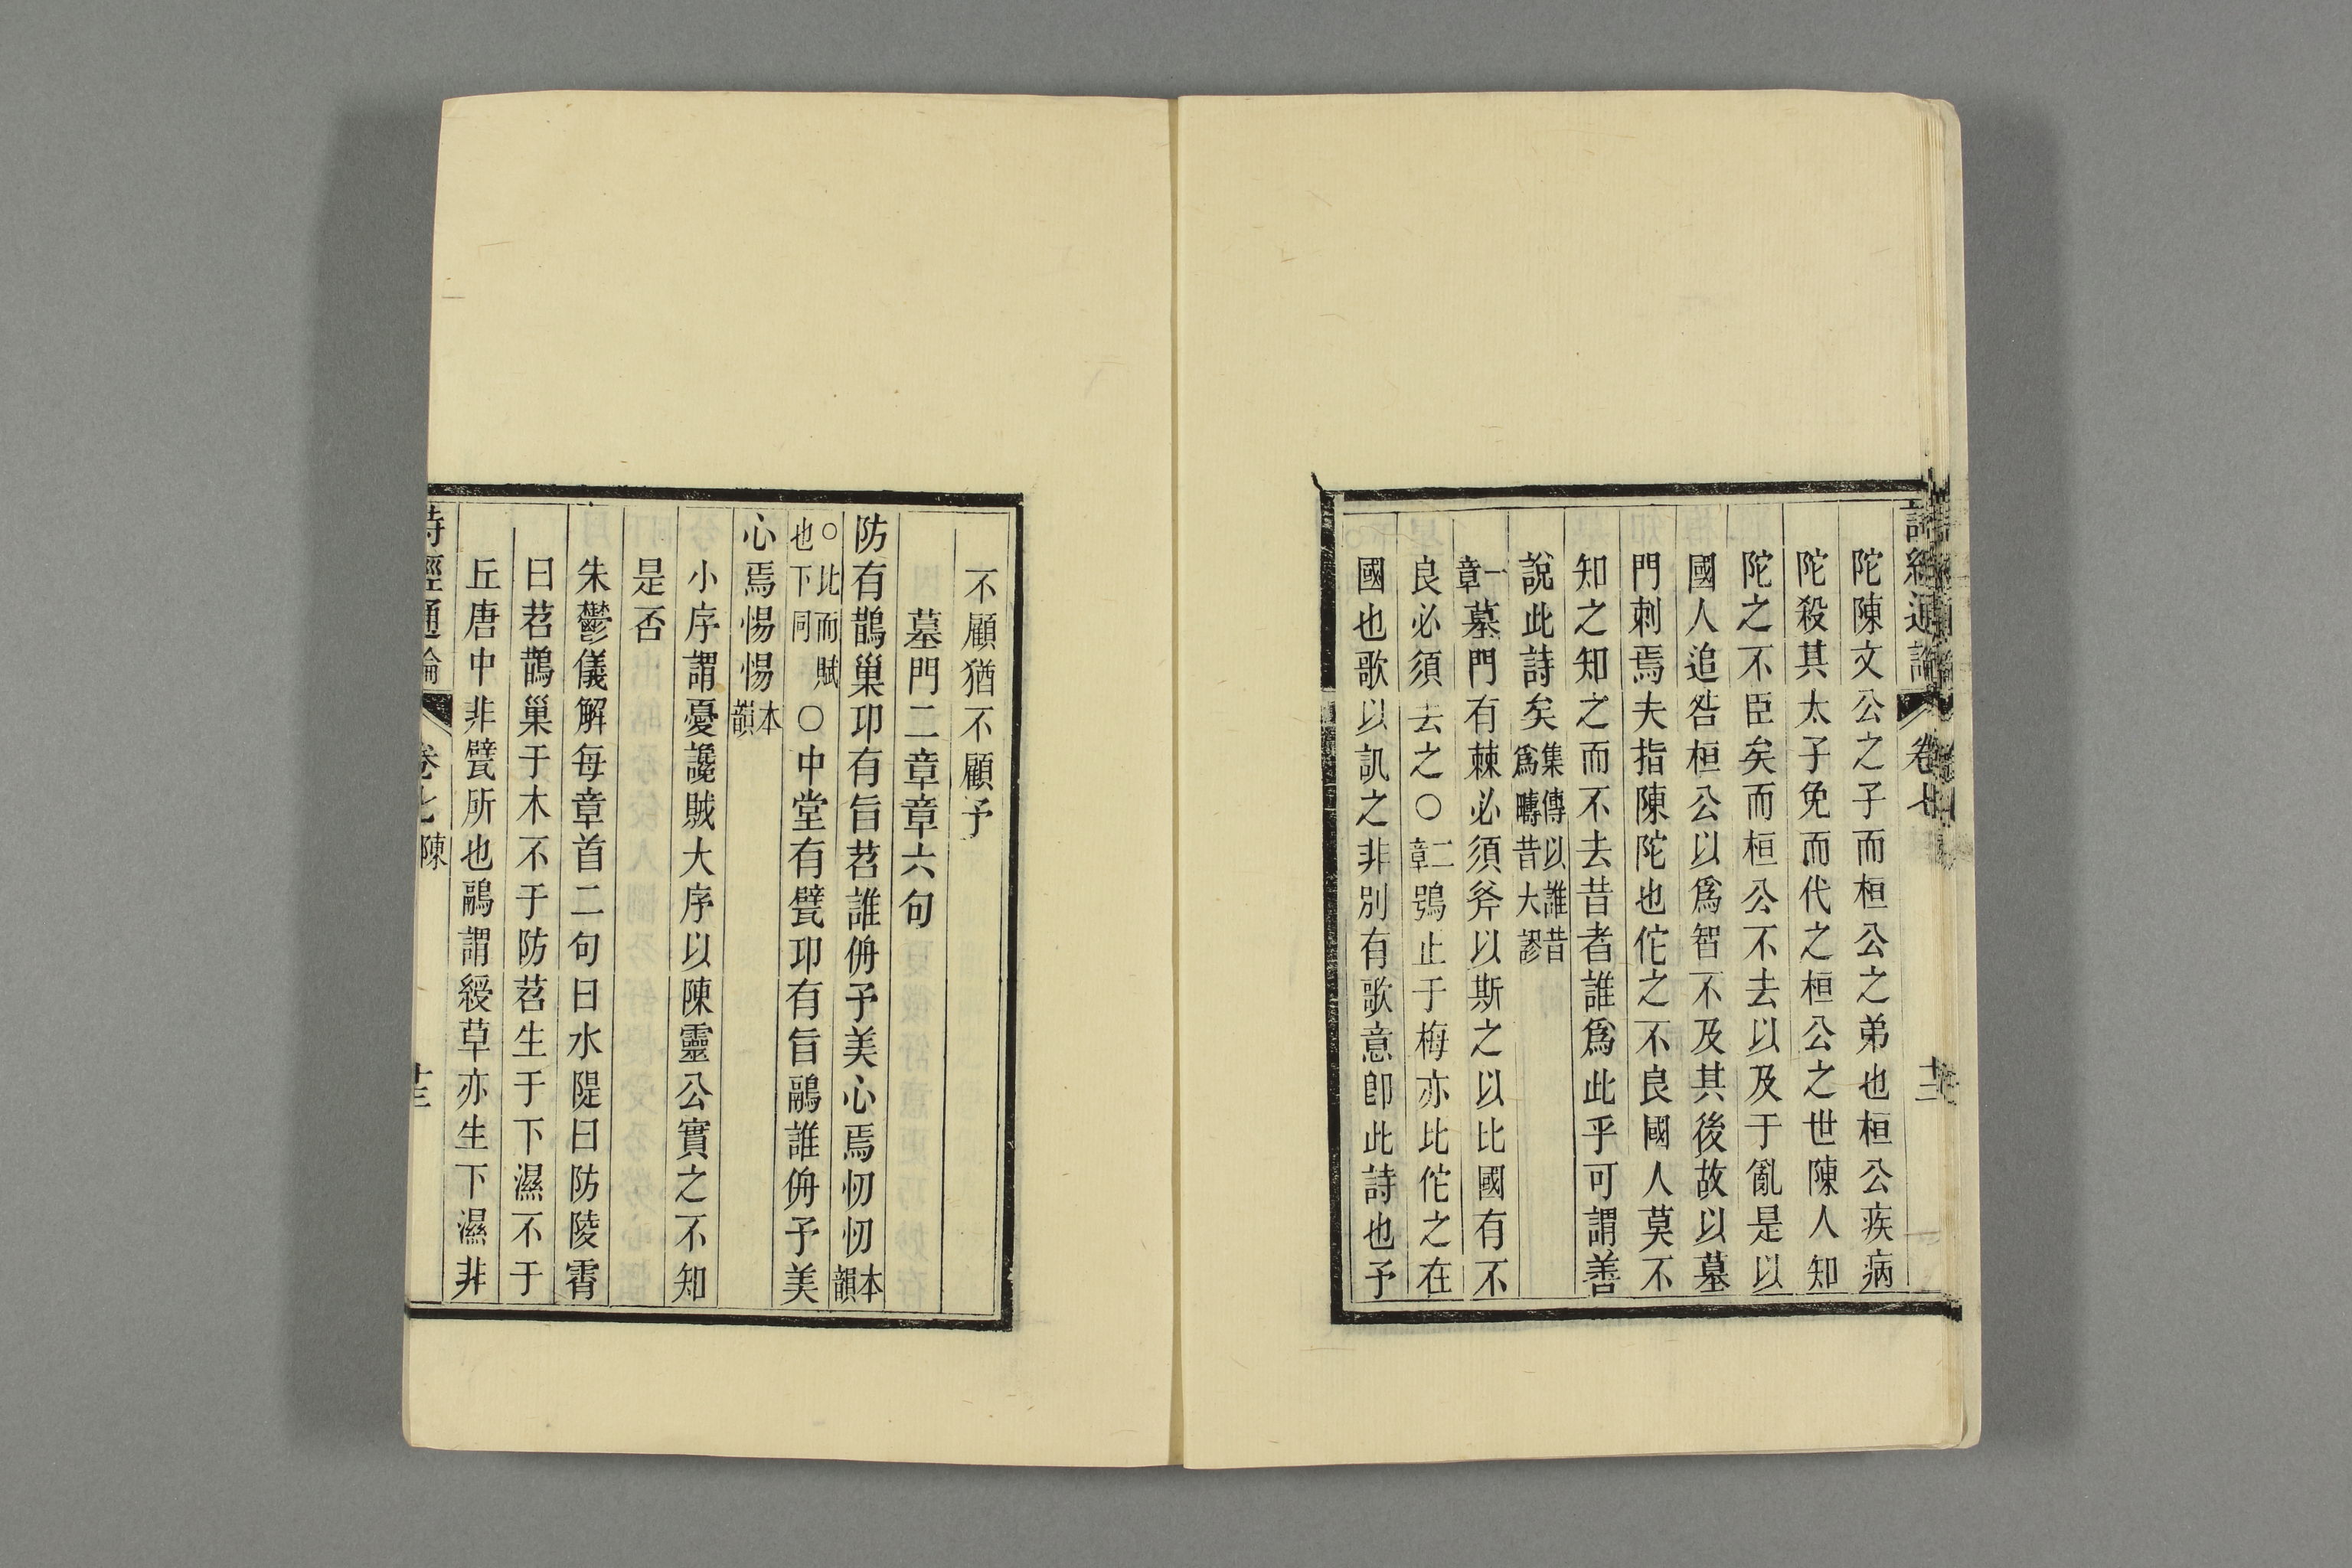 詩經通論 卷七 十二
陀陳文公之子而桓公之弟也桓公疾病
陀殺其太子免而代之桓公之世陳人知
陀之不臣矣而桓公不去以及于亂是以
國人追咎桓公以爲智不及其後故以墓
門刺焉夫指陳陀也佗之不良國人莫不
知之知之而不去昔者誰爲此乎可謂善
說此詩矣集傳以誰昔爲疇昔大謬
一章墓門有棘必須斧以斯之以比國有不
良必須去之○二章鴞止于梅亦比佗之在
國也歌以訊之非別有歌意卽此詩也予
不顧猶不顧予
墓門二章章六句
防有鵲巢卭有旨苕誰侜予美心焉忉忉本韻
○比而賦也下同○中堂有甓卭有旨鷊誰侜予美
心焉惕惕本韻
小序謂憂讒賊大序以陳靈公實之不知
是否
朱鬱儀解每章首二句曰水隄曰防陵霄
曰苕鵲巢于木不于防苕生于下濕不于
丘唐中非甓所也鷊謂綬草亦生下濕非
詩經通論 卷七陳 十三